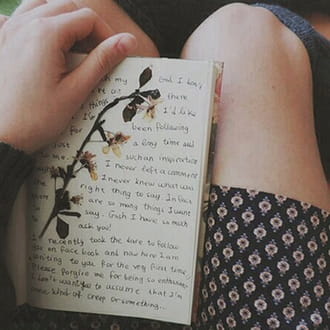 my God I have
there
things I'd like
I've
for been following
a long time and
such an inspiration
me. I never left a comment
I never knew what was
right thing to say. In fact
are so many things I want
say. Gosh I have so much
ask you!
I recently took the dare to follow
you on face book and now here I am
writing to you for the very first time.
Please forgive me for being so enthusias-
I don't want you to assume that I'm
some kind of creep or something...